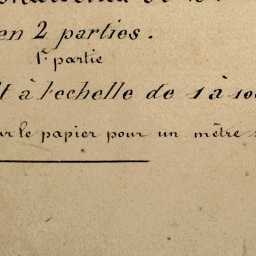 en 2 parties.
1<sup>e</sup> partie
à l'echelle de 1 à
le papier pour un mètre